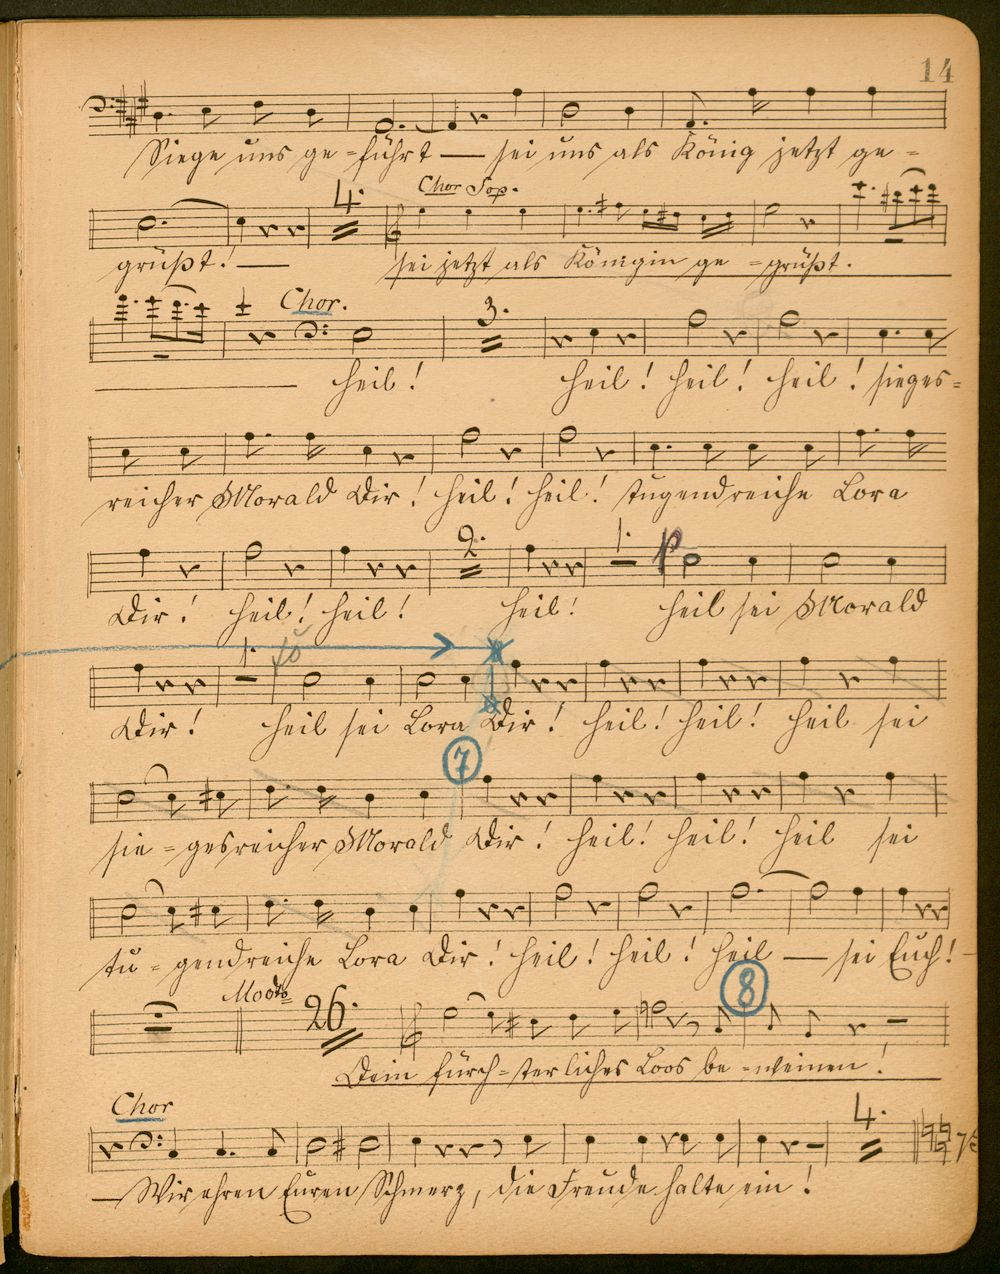 14
Siege uns ge=führt — sei uns als König jetzt ge=
4. Chor Sop.
grüßt! — sei jetzt als Königin ge=grüßt.
Chor. 3.
heil! heil! heil! heil! sieges=
reicher Morald Dir! heil! heil! tugendreiche Lora
2. 1. p
Dir! heil! heil! heil! heil sei Morald
1.
Dir! heil sei Lora Dir! heil! heil! heil sei
7
sie=gesreicher Morald Dir! heil! heil! heil sei
tu=gendreiche Lora Dir! heil! heil! heil — sei Euch!
Modto 26. 8
Dein fürch=terliches Loos be=weinen!
Chor 4.
— Wir ehren Euren Schmerz, die Freude halte ein!